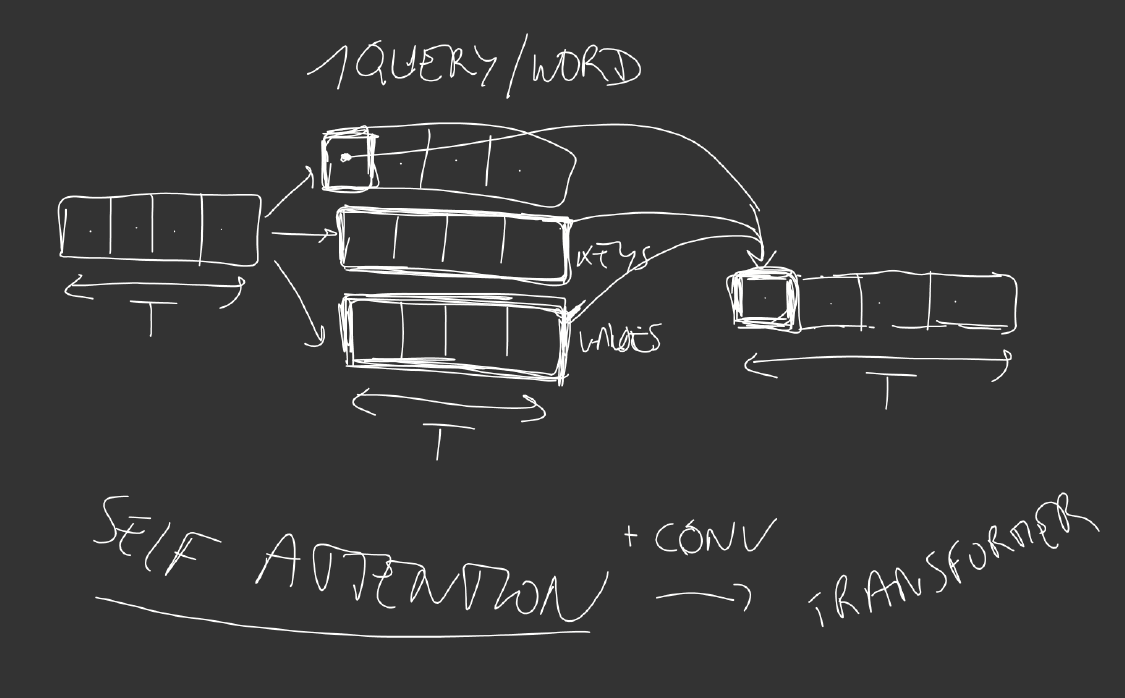 1 QUERY/WORD
KEYS
VALUES
T
T
T
SELF ATTENTION
+ CONV
TRANSFORMER